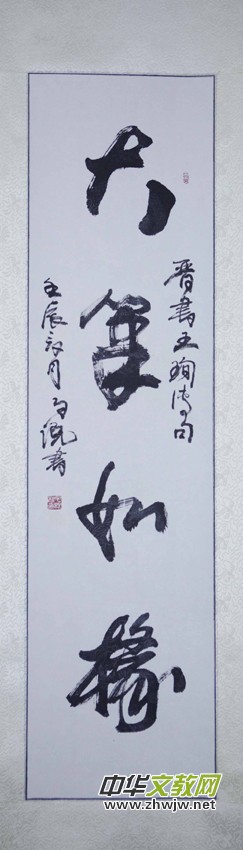 大笔如椽
晋书王珣传句
壬辰
书
中华文教网
www.zhwjw.net